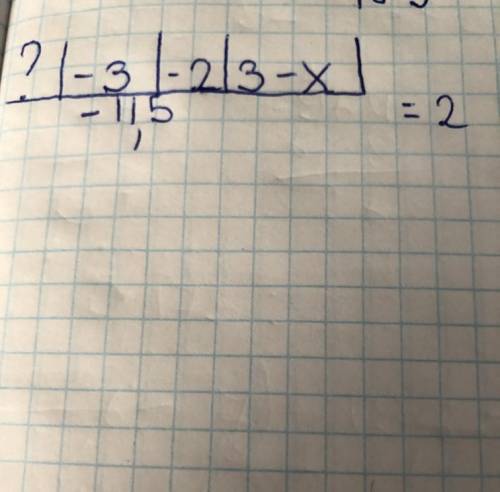 ? |-3|-2|3-x|
-11,5
= 2